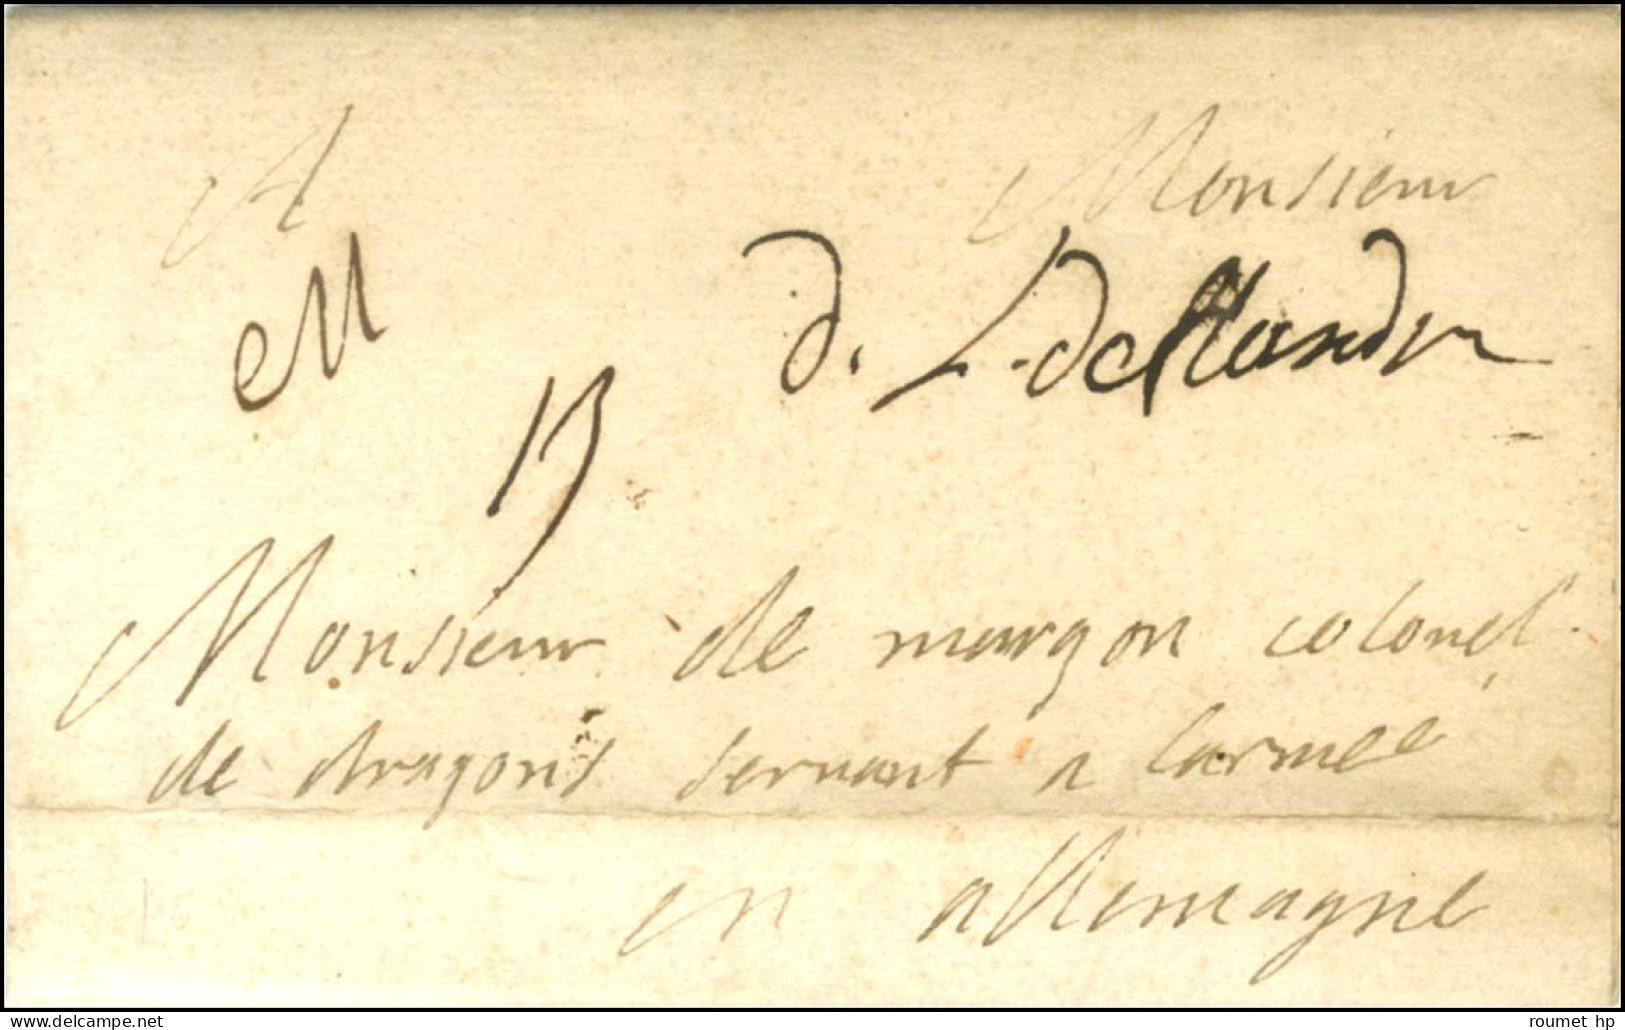 A Monsieur
en d. L. de flandre
Monsieur de margon colonel
de dragons servant a larmee
en allemagne
roumet hp
www.delcampe.net